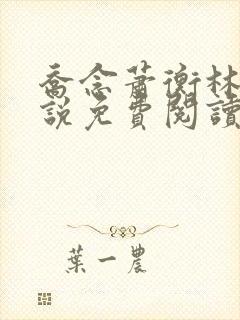 喬念蕭衡林
說免費閱讀
葉一農